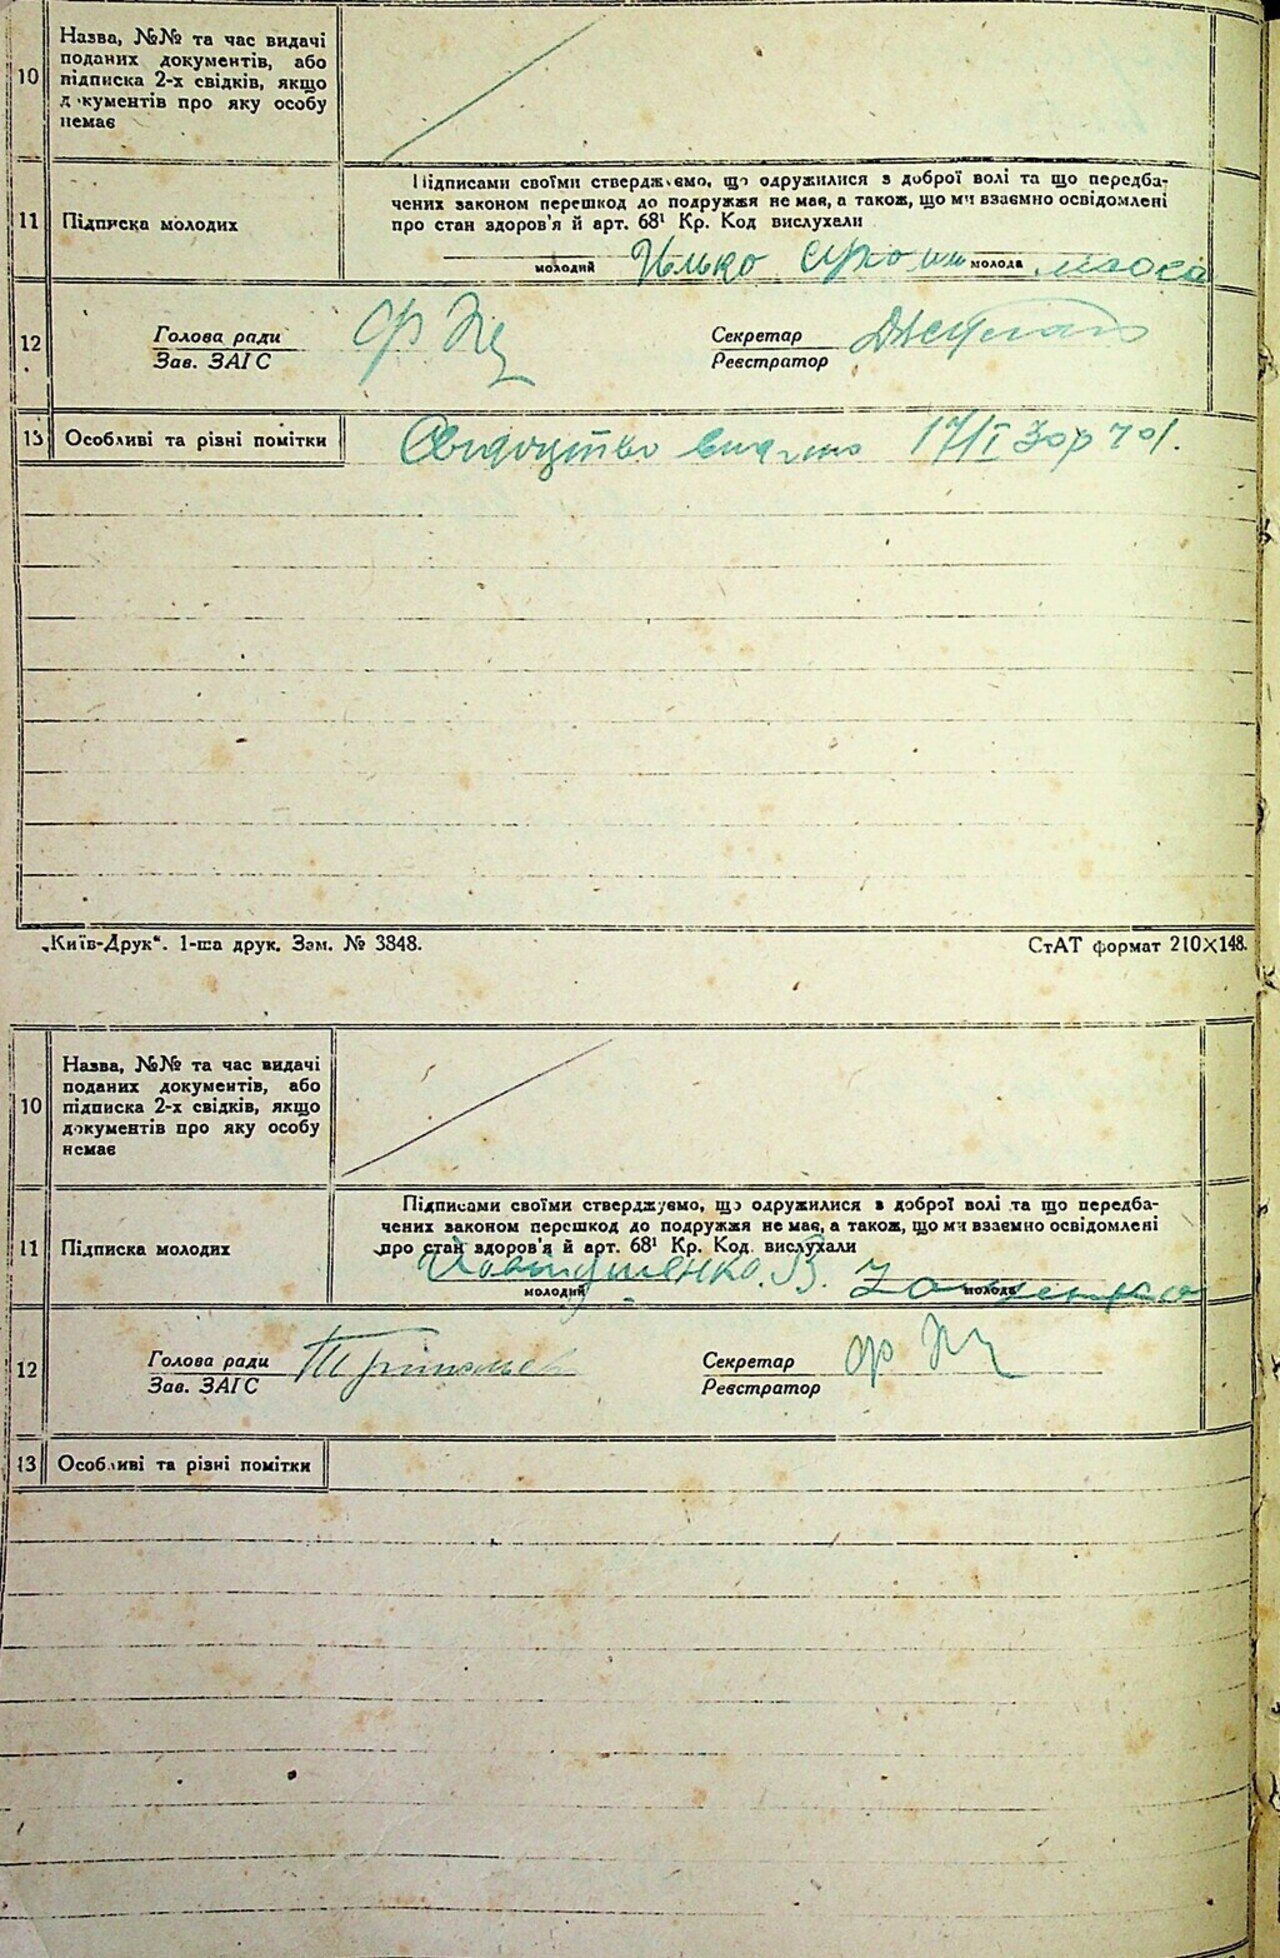 10
Назва, №№ та час видачі
поданих документів, або
підписка 2-х свідків, якщо
документів про яку особу
немає
11
Підписка молодих
Підписами своїми стверджуємо, що одружилися з доброї волі та що передба-
чених законом перешкод до подружжя не має, а також, що ми взаємно освідомлені
про стан здоров'я й арт. 68¹ Кр. Код вислухали
молодий
молода
12
Голова ради
Зав. ЗАГС
Секретар
Реєстратор
13
Особливі та різні помітки
Свідоцтво видано 17/I
„Київ-Друк“. 1-ша друк. Зам. № 3848.
СтАТ формат 210×148.
10
Назва, №№ та час видачі
поданих документів, або
підписка 2-х свідків, якщо
документів про яку особу
немає
11
Підписка молодих
Підписами своїми стверджуємо, що одружилися з доброї волі та що передба-
чених законом перешкод до подружжя не має, а також, що ми взаємно освідомлені
про стан здоров'я й арт. 68¹ Кр. Код. вислухали
молодий
молода
12
Голова ради
Зав. ЗАГС
Секретар
Реєстратор
13
Особливі та різні помітки